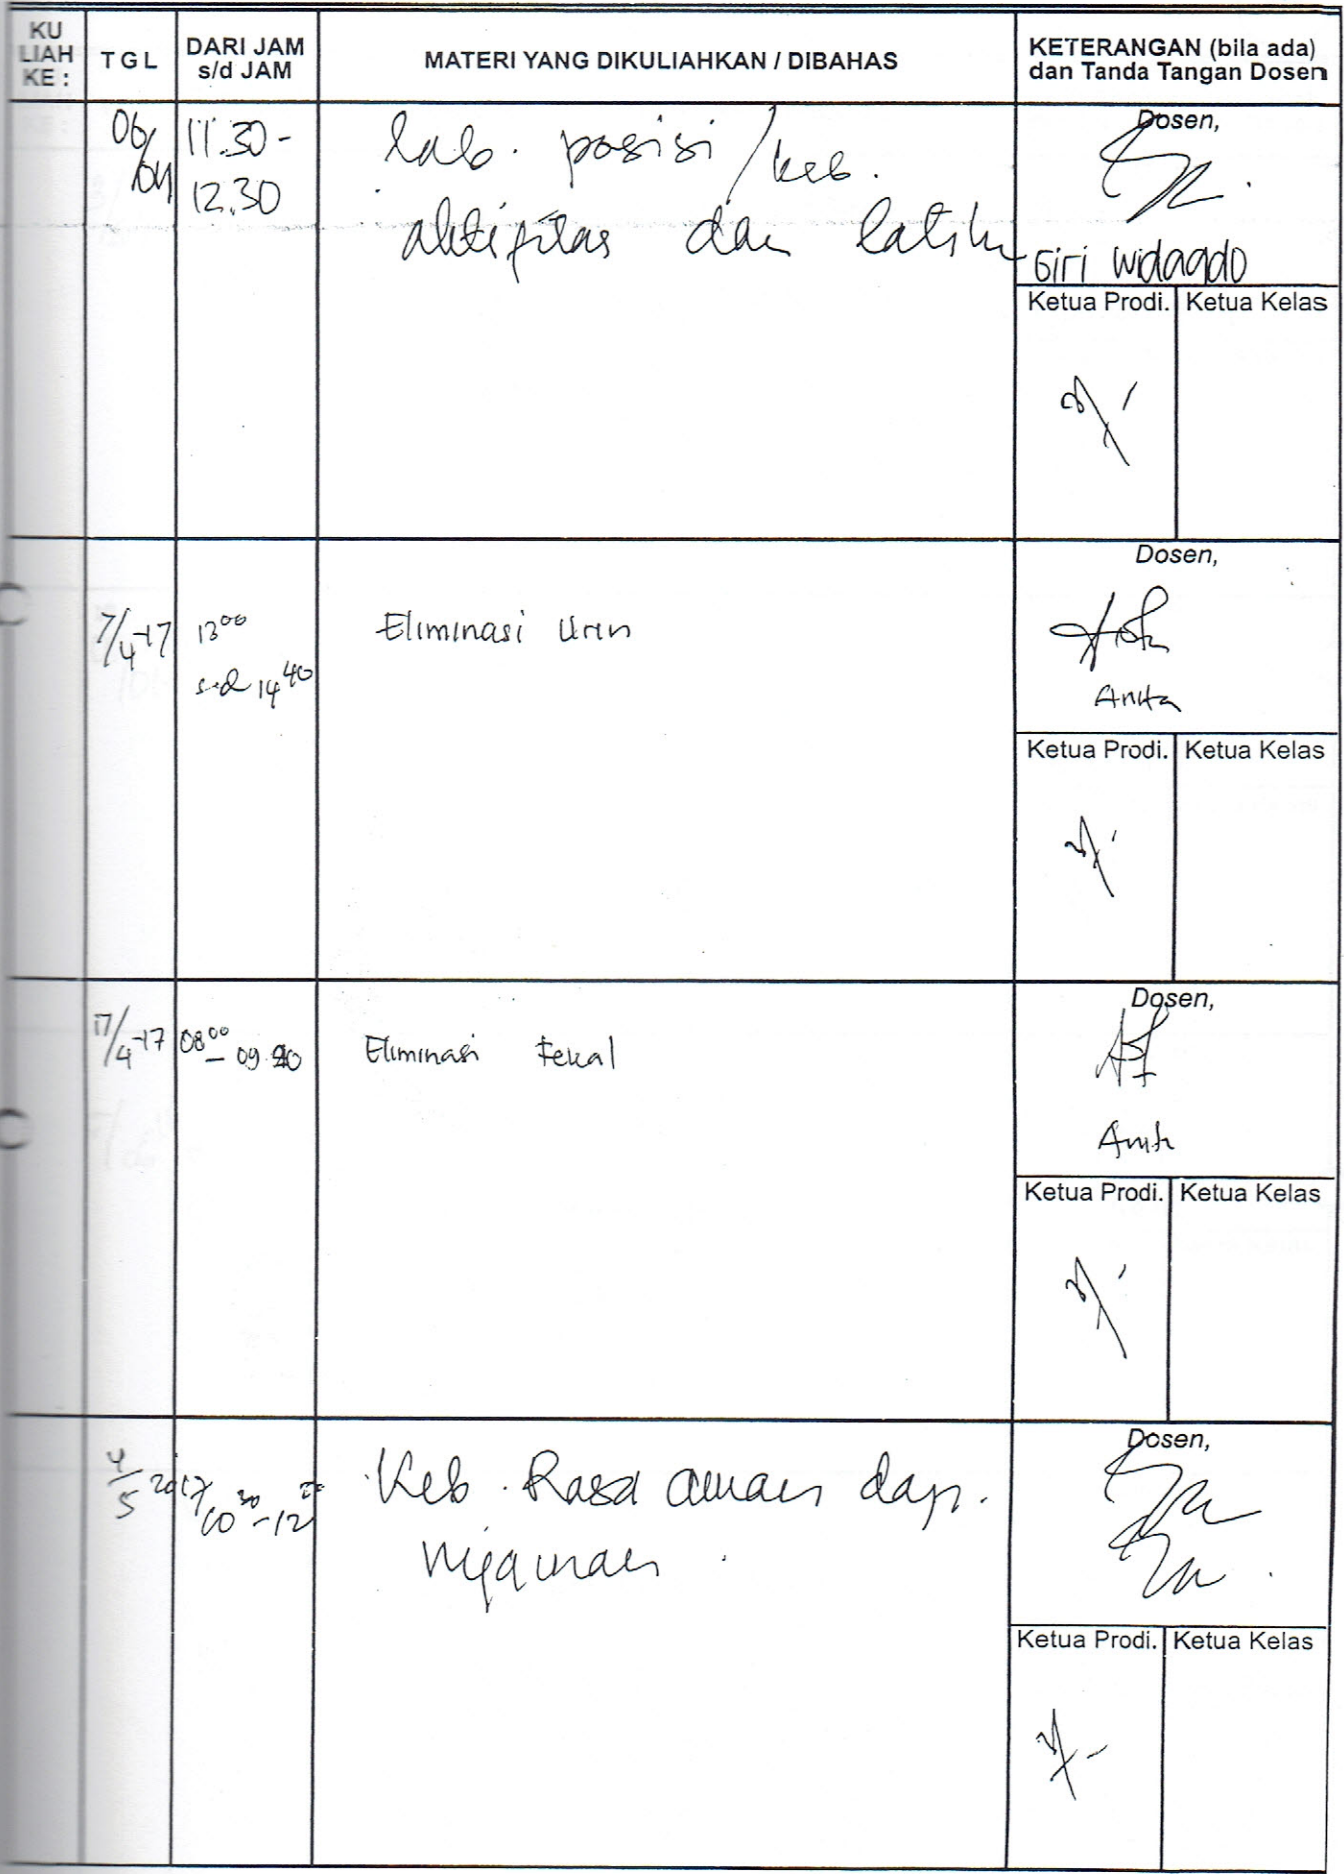 KU LIAH KE :
T G L
DARI JAM s/d JAM
MATERI YANG DIKULIAHKAN / DIBAHAS
KETERANGAN (bila ada) dan Tanda Tangan Dosen
06/04
11.30 -
12.30
lab. posisi / keb.
aktifitas dan
Dosen,
Giri Widagdo
Ketua Prodi. Ketua Kelas
7/4-17
13.00
s.d 14.40
Eliminasi Urin
Dosen,
Anita
Ketua Prodi. Ketua Kelas
17/4-17
08.00 - 09.
Eliminasi Fekal
Dosen,
Ketua Prodi. Ketua Kelas
4/5 2017
Keb. Rasa aman dan
nyaman.
Dosen,
Ketua Prodi. Ketua Kelas